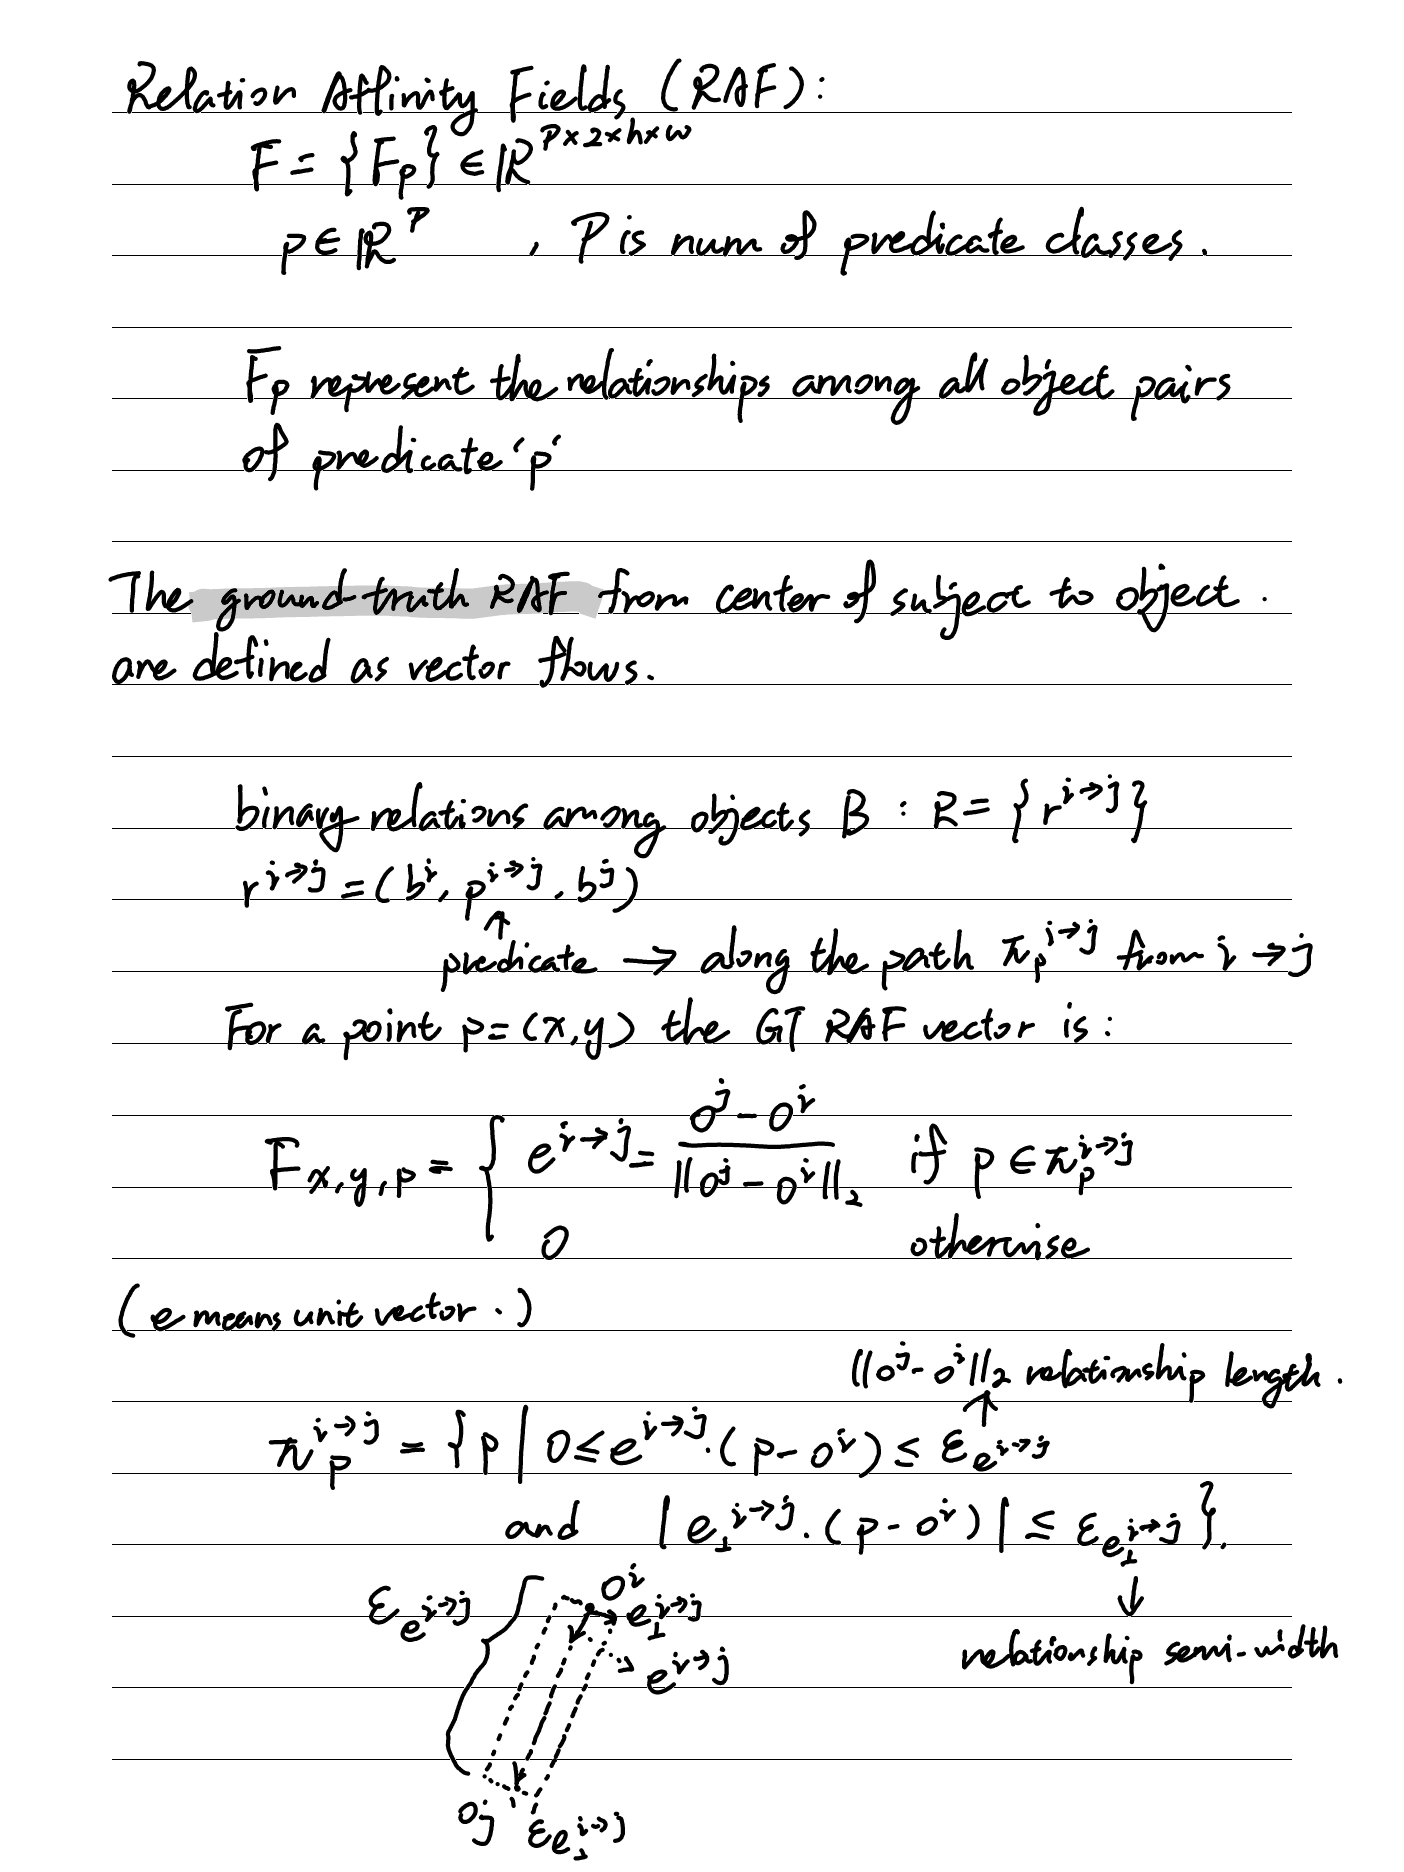 Relation Affinity Fields (RAF):
F = {Fₚ} ∈ ℝ^{P×2×h×w}
p ∈ ℝ^P , P is num of predicate classes.
Fₚ represent the relationships among all object pairs
of predicate 'p'
The ground-truth RAF from center of subject to object.
are defined as vector flows.
binary relations among objects B : R = {r^{i→j}}
r^{i→j} = (b^i, p^{i→j}, b^j)
↑
predicate → along the path π_p^{i→j} from i → j
For a point p=(x,y) the GT RAF vector is:
F_{x,y,p} = { e^{i→j} = (o^j - o^i) / ||o^j - o^i||_2 if p ∈ π_p^{i→j}
0 otherwise
(e means unit vector.)
||o^j - o^i||_2 relationship length.
↑
π_p^{i→j} = {p | 0 ≤ e^{i→j}·(p - o^i) ≤ ε_{e^{i→j}}
and |e_⊥^{i→j}·(p - o^i)| ≤ ε_{e_⊥^{i→j}}}.
↓
relationship semi-width
ε_{e^{i→j}}
o^i
e_⊥^{i→j}
e^{i→j}
o_j
ε_{e_⊥^{i→j}}